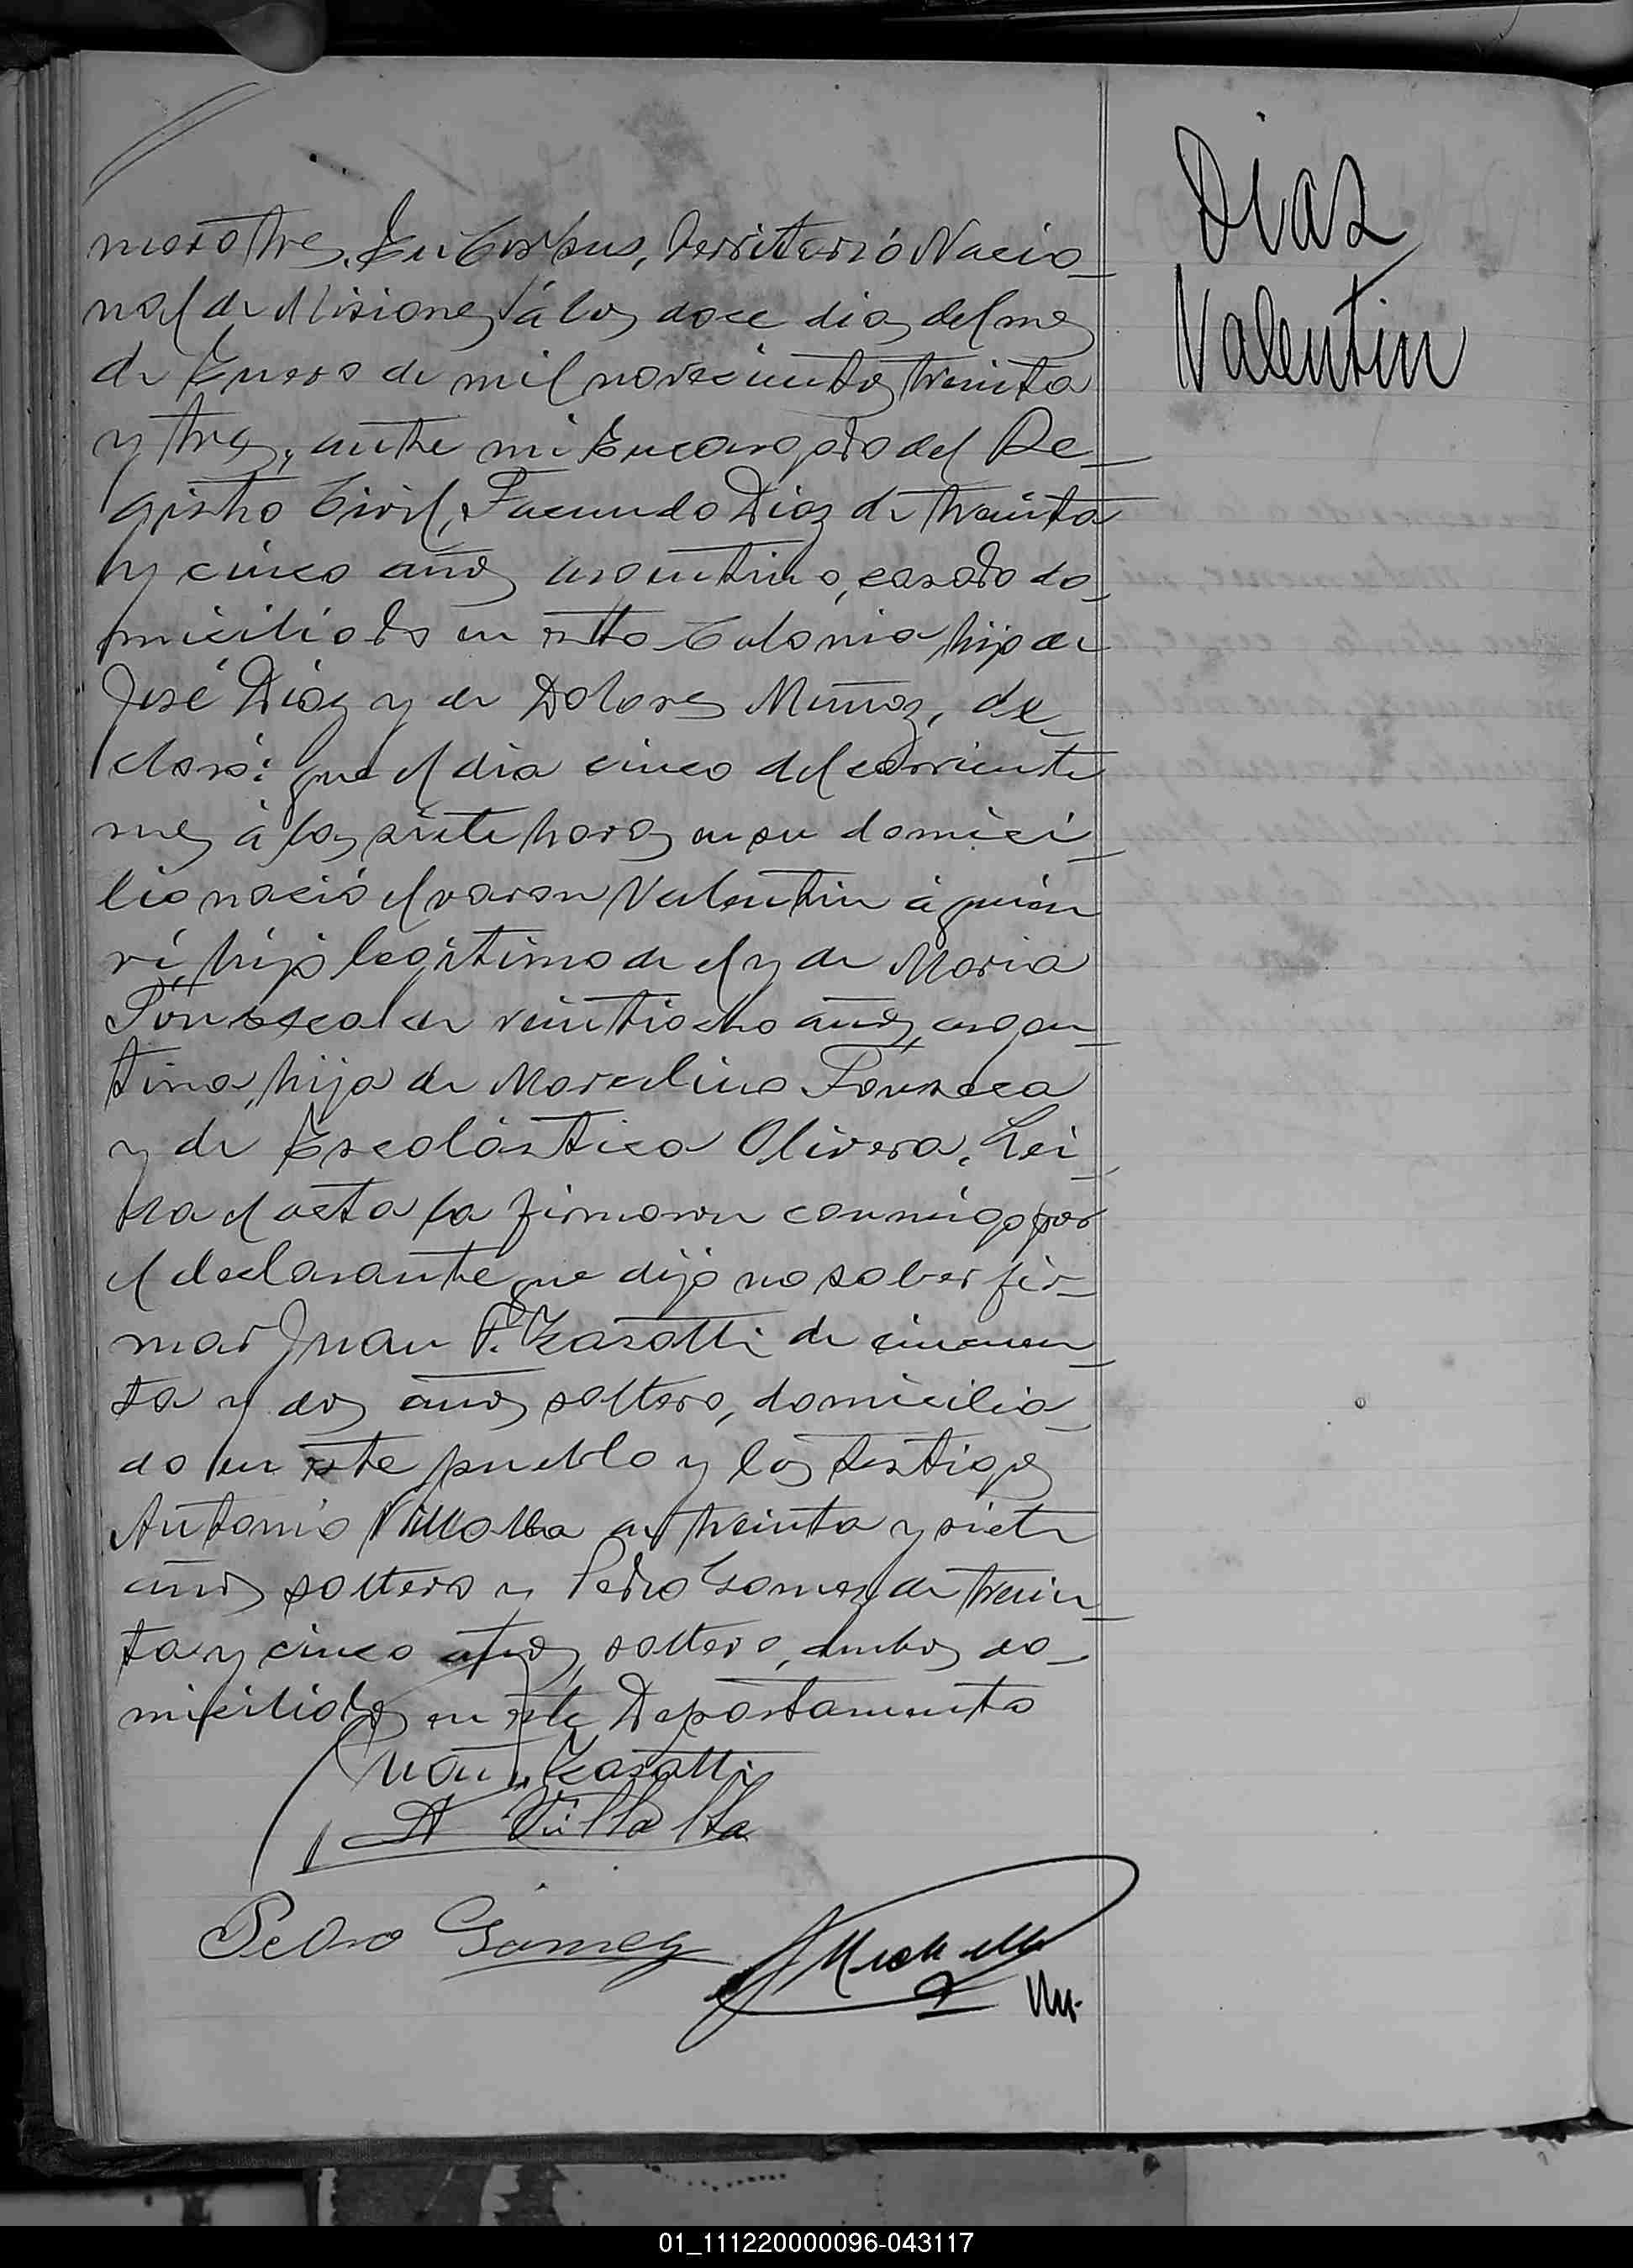 Diaz
Valentin
mero tres. En Corpus, Territorio Nacio-
nal de Misiones á los doce dias del mes
de Enero de mil novecientos treinta
y tres, ante mi Encargado del Re-
gistro Civil, Facundo Diaz de treinta
y cinco años argentino, casado do-
miciliado en esta Colonia, hijo de
José Diaz y de Dolores Muñoz, de-
claró: que el dia cinco del corriente
mes á las siete horas en su domici-
lio nació el varon Valentin á quien
ví, hijo legítimo de el y de Maria
Fonseca de veintiocho años, argen-
tina, hija de Marcelino Fonseca
y de Escolástica Olivera. Lei-
da el acta la firmaron conmigo por
el declarante que dijo no saber fir-
mar Juan P. Zasatti de cincuen-
ta y dos años soltero, domicilia-
do en este pueblo y los testigos
Antonio Villalba de treinta y siete
años soltero y Pedro Gomez de trein-
ta y cinco años, soltero, ambos do-
miciliados en este Departamento
Juan P. Zasatti
A Villalba
Pedro Gomez
01_111220000096-043117